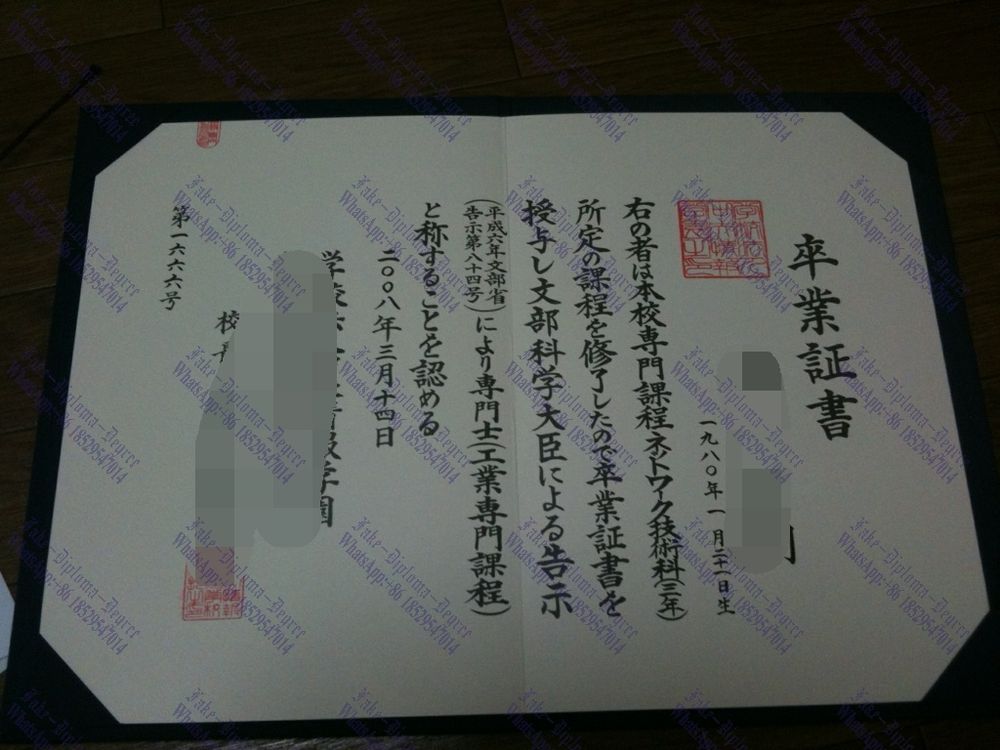 卒業証書
一九八〇年一月二十一日生
右の者は本校専門課程ネットワーク技術科(三年)
所定の課程を修了したので卒業証書を
授与し文部科学大臣による告示
(平成六年文部省告示第八十四号)により専門士(工業専門課程)
と称することを認める
二〇〇八年三月十四日
学校
学園
校長
第一六六六号
Fake-Diploma-Degree
WhatsApp:+86 18529547014